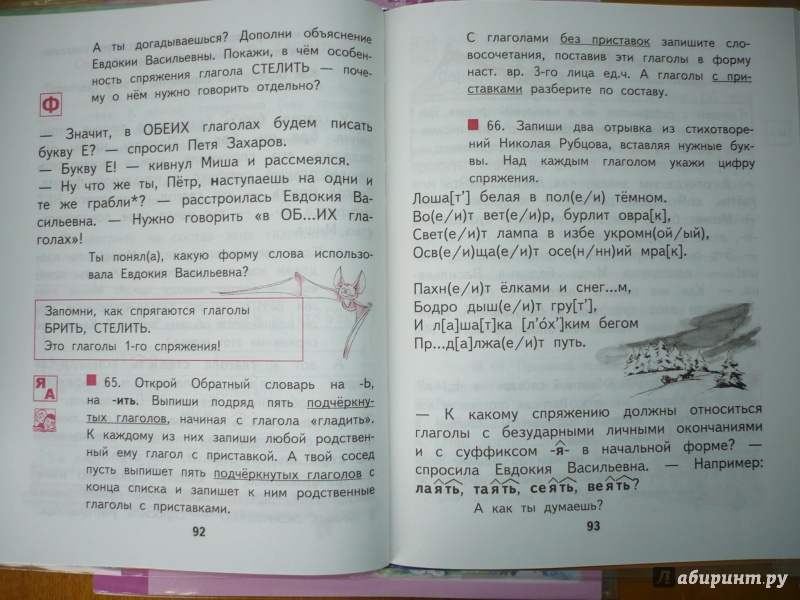 А ты догадываешься? Дополни объяснение
Евдокии Васильевны. Покажи, в чём особен-
ность спряжения глагола СТЕЛИТЬ — поче-
му о нём нужно говорить отдельно?
Ф
— Значит, в ОБЕИХ глаголах будем писать
букву Е? — спросил Петя Захаров.
— Букву Е! — кивнул Миша и рассмеялся.
— Ну что же ты, Пётр, наступаешь на одни и
те же грабли*? — расстроилась Евдокия Ва-
сильевна. — Нужно говорить «в ОБ...ИХ гла-
голах»!
Ты понял(а), какую форму слова использо-
вала Евдокия Васильевна?
Запомни, как спрягаются глаголы
БРИТЬ, СТЕЛИТЬ.
Это глаголы 1-го спряжения!
Я
А
65. Открой Обратный словарь на -Ь,
на -ить. Выпиши подряд пять подчёркну-
тых глаголов, начиная с глагола «гладить».
К каждому из них запиши любой родствен-
ный ему глагол с приставкой. А твой сосед
пусть выпишет пять подчёркнутых глаголов с
конца списка и запишет к ним родственные
глаголы с приставками.
92
С глаголами без приставок запишите сло-
восочетания, поставив эти глаголы в форму
наст. вр. 3-го лица ед.ч. А глаголы с при-
ставками разберите по составу.
66. Запиши два отрывка из стихотворе-
ний Николая Рубцова, вставляя нужные бук-
вы. Над каждым глаголом укажи цифру
спряжения.
Лоша[т’] белая в пол(е/и) тёмном.
Во(е/и)т вет(е/и)р, бурлит овра[к],
Свет(е/и)т лампа в избе укромн(ой/ый),
Осв(е/и)ща(е/и)т осе(н/нн)ий мра[к].
Пахн(е/и)т ёлками и снег...м,
Бодро дыш(е/и)т гру[т’],
И л[а]ша[т]ка [л’о́х’]ким бегом
Пр...д[а]лжа(е/и)т путь.
— К какому спряжению должны относиться
глаголы с безударными личными окончаниями
и с суффиксом -я- в начальной форме? —
спросила Евдокия Васильевна. — Например:
лаять, таять, сеять, веять?
А как ты думаешь?
93
Лабиринт.ру